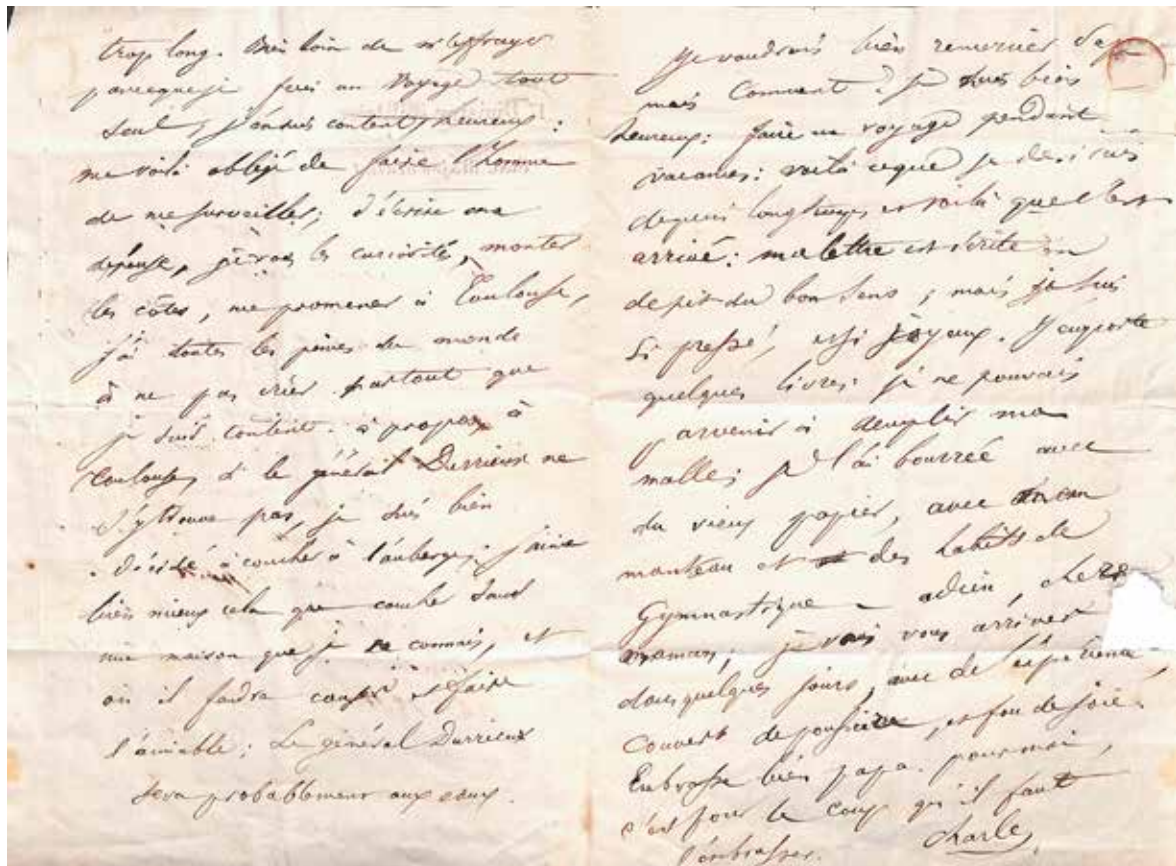 trop long. Bien loin de m'effrayer
parceque je fais un voyage tout
seul, j'en suis content, heureux :
me voilà obligé de faire l'homme
de me surveiller; d'écrire ma
dépense, je vais les curiosités, monter
les côtes, me promener à Toulouse,
j'ai toutes les peines du monde
à ne pas crier partout que
je suis content. à propos à
Toulouse, si le général Durrieux ne
s'y trouve pas, je suis bien
décidé à coucher à l'auberge. j'aime
bien mieux cela que coucher dans
une maison que je ne connais, et
où il faudra causer et faire
l'aimable; Le général Durrieux
sera probablement aux eaux.
Je voudrais bien remercier
mais comment ? je suis bien
heureux: faire un voyage pendant
vacances: voilà ceque je desirais
depuis longtemps et voilà que c'est
arrivé: ma lettre est écrite en
depit du bon sens; mais je suis
si pressé, et si joyeux. J'emporte
quelques livres: je ne pouvais
parvenir à remplir ma
malle; je l'ai bourrée avec
du vieux papier, avec mon
manteau et des habits de
Gymnastique - adieu, chère
maman; je vais vous arriver
dans quelques jours, avec de l'expérience,
couvert de poussière, et fou de joie.
Embrasse bien papa. pour moi,
c'est pour le coup qu'il faut
l'embrasser.
Charles